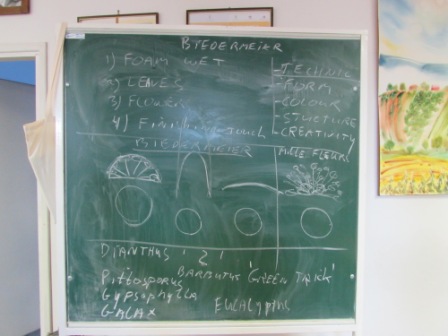 BIEDERMEIER
1) FOAM WET
2) LEAVES
3) FLOWERS
4) FINISHING TOUCH
- TECHNIC
- FORM
- COLOUR
- STUCTURE
- CREATIVITY
BIEDERMEIER
MILLE FLEURS
DIANTHUS '2'
BARBUTUS 'GREEN TRICK'
Pittosporus
Gypsophylla
EUCALYPTUS
GALAX